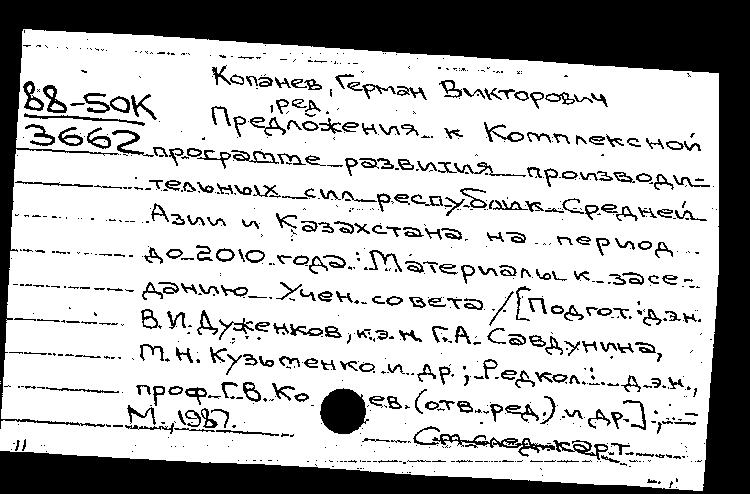 Копанев, Герман Викторович
, ред.
88-50К
3662
Предложения к Комплексной
программе развития производи=
тельных сил республик Средней
Азии и Казахстана на период
до 2010 года : Материалы к засе-
данию Учен. совета / [Подгот.: д.э.н.
В.И. Дуженков, к.э.н. Г.А. Савдунина,
М.Н. Кузьменко и др.; Редкол.: д.э.н.,
проф. Г.В. Ко ев. (отв. ред.) и др.] ; —
М., 1987.
См. след. карт.